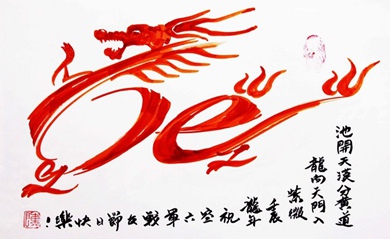 池開天漢分黃道
龍向天門入
紫微
壬辰
龍
祝空六軍戰友節日快樂!